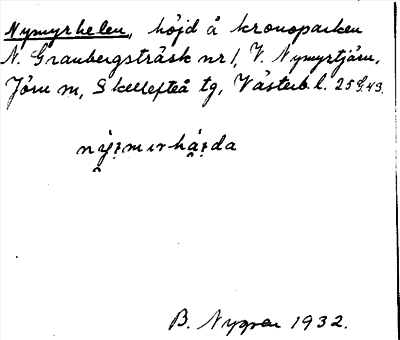 Nymyrhelen, höjd å kronoparken
N. Granbergsträsk nr 1, V. Nymyrtjärn,
Jörn sn, Skellefteå tg, Västerb. l. 25 9.43.
B. Nygren 1932.